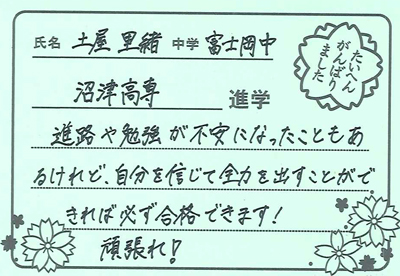 氏名 土屋 里緒 中学 富士岡中
たいへん
がんばり
ました
沼津高専 進学
進路や勉強が不安になったこともあ
るけれど、自分を信じて全力を出すことがで
きれば必ず合格できます!
頑張れ!